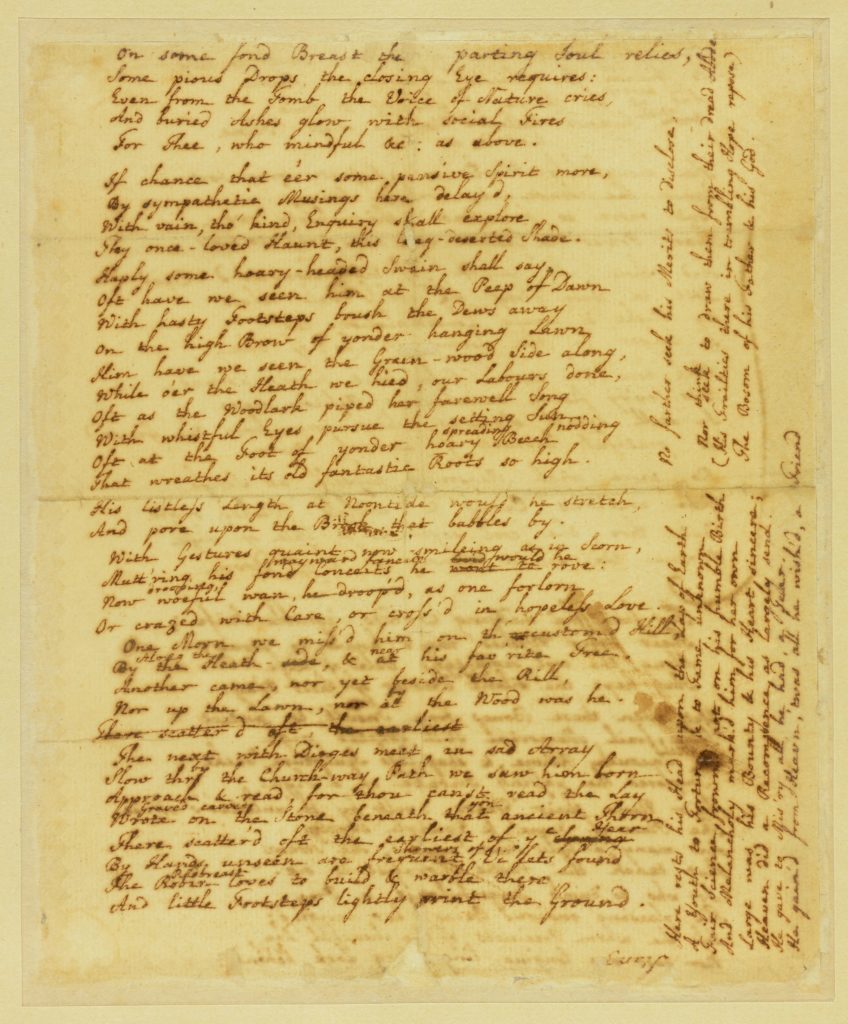 On some fond Breast the parting Soul relies,
Some pious Drops the closing Eye requires:
Even from the Tomb the Voice of Nature cries,
And buried Ashes glow with social Fires
For Thee, who mindful &c: as above.
If chance that e'er some pensive Spirit more,
By sympathetic Musings here delay'd,
With vain, tho' kind, Enquiry shall explore
Thy once-loved Haunt, this long-deserted Shade.
Haply some hoary-headed Swain shall say,
Oft have we seen him at the Peep of Dawn
With hasty Footsteps brush the Dews away
On the high Brow of yonder hanging Lawn
Him have we seen the Green-wood Side along,
While o'er the Heath we hied, our Labours done,
Oft as the Woodlark piped her farewell Song
With whistful Eyes pursue the setting Sun.
spreading nodding
Oft at the Foot of yonder hoary Beech
That wreathes its old fantastic Roots so high.
His listless Length at Noontide would he stretch,
And pore upon the Brook that babbles by.
With Gestures quaint now smileing as in Scorn,
wayward fancies would he
Mutt'ring his fond Conceits he wont to rove:
drooping
Now woeful wan, he droop'd, as one forlorn
Or crazed with Care, or cross'd in hopeless Love.
One Morn we miss'd him on th' accustom'd Hill,
Along the near
By the Heath-side, & at his fav'rite Tree.
Another came, nor yet beside the Rill,
by
Nor up the Lawn, nor at the Wood was he.
There scatter'd oft, the earliest
The next with Dirges meet in sad Array
by
Slow thro the Church-way Path we saw him born
Approach & read, for thou canst read the Lay
Graved carved yon
Wrote on the Stone beneath that ancient Thorn
Year
There scatter'd oft the earliest of ye Spring
Showers of
By Hands unseen are frequent Vi'lets found
Redbreast
The Robin loves to build & warble there
And little Footsteps lightly print the Ground.
Here rests his Head upon the Lap of Earth
A Youth to Fortune & to Fame unknown
Fair Science frown'd not on his humble Birth
And Melancholy mark'd him for her own
Large was his Bounty & his Heart sincere;
Heaven did a Recompence as largely send
He gave to Mis'ry all he had, a Tear
He gain'd from Heav'n, 'twas all he wish'd, a Friend
No farther seek his Merits to disclose,
think
Nor seek to draw them from their dread Abode
(His Frailties there in trembling Hope repose)
The Bosom of his Father & his God.